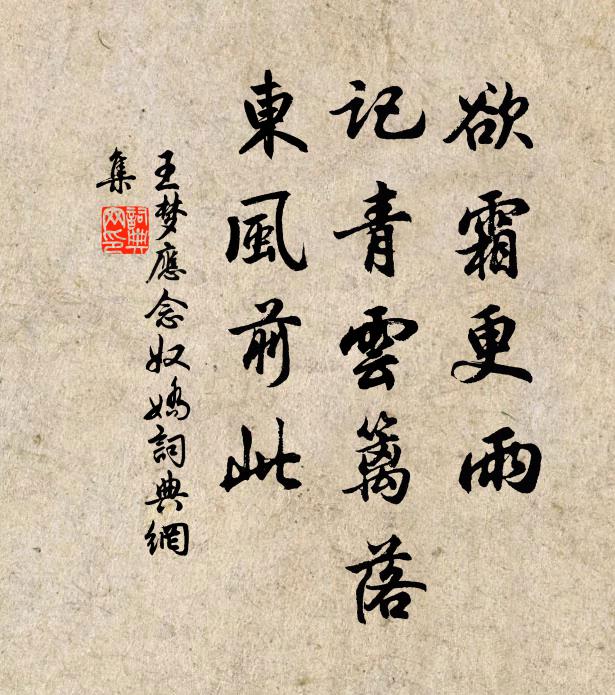 欲霜更雨
記青雲籬落
東風前此
王梦應念奴嬌詞典網
集
詞典
网印